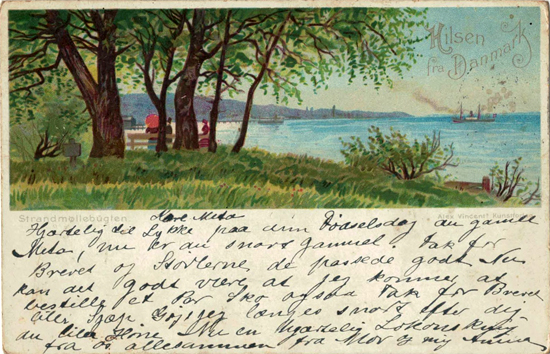 Hilsen
fra Danmark
Strandmøllebugten.
Alex Vincent Kunstfo
Kære Meta
Hjertelig til Lykke paa din Fødselsdag du gamle
Meta, nu er du snart gammel Tak for
Brevet og Støvlerne de passede godt Nu
kan det godt være at jeg kommer at
bestille et Par Sko ogsaa Tak for Brevet
længes snart efter dig
du lille Nu en hjertelig
fra os allesammen fra Mor og